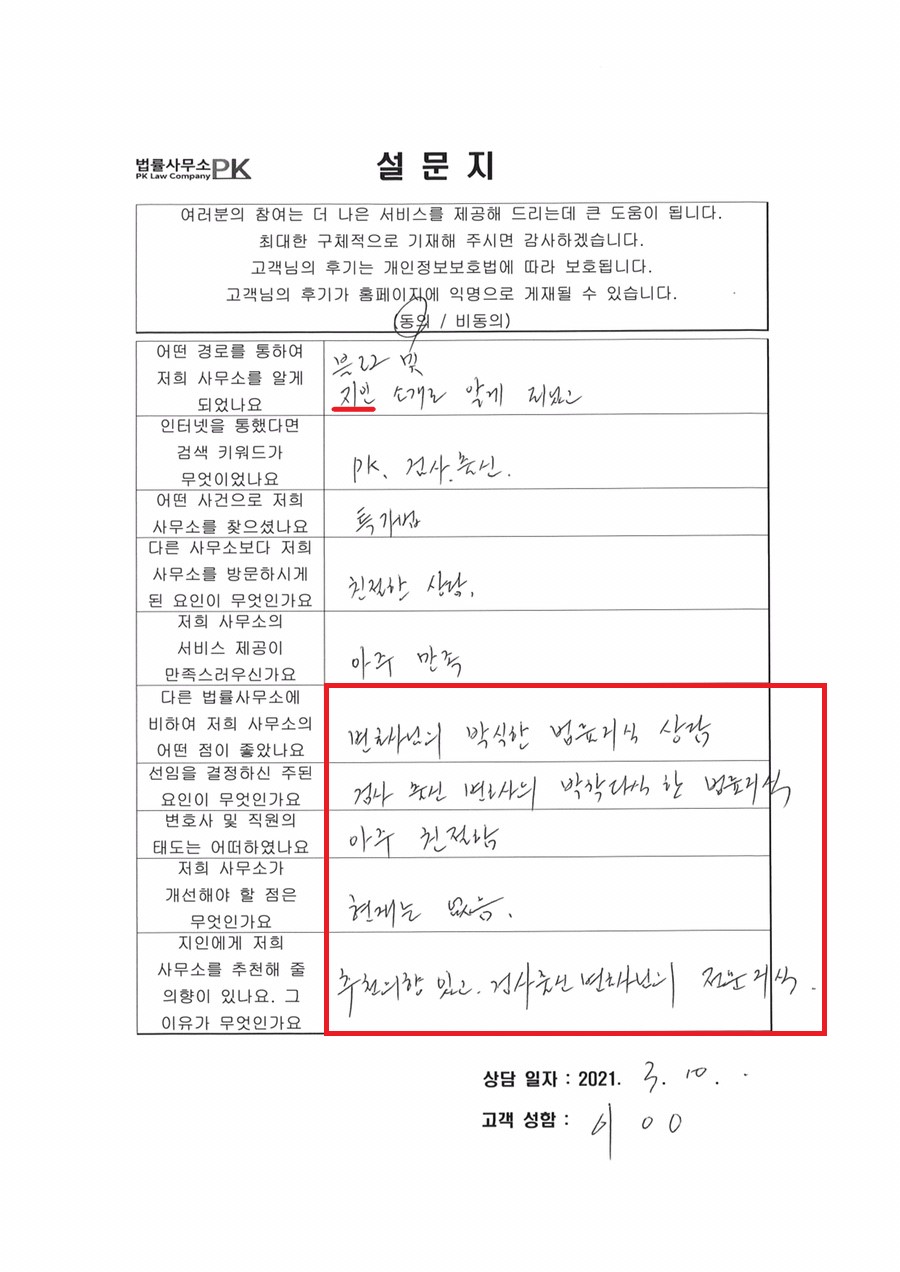 법률사무소PK
PK Law Company
설 문 지
여러분의 참여는 더 나은 서비스를 제공해 드리는데 큰 도움이 됩니다.
최대한 구체적으로 기재해 주시면 감사하겠습니다.
고객님의 후기는 개인정보보호법에 따라 보호됩니다.
고객님의 후기가 홈페이지에 익명으로 게재될 수 있습니다.
(동의 / 비동의)
어떤 경로를 통하여
저희 사무소를 알게
되었나요
및
지인 소개로 알게 되었고
인터넷을 통했다면
검색 키워드가
무엇이었나요
PK, 검사.출신.
어떤 사건으로 저희
사무소를 찾으셨나요
특가법
다른 사무소보다 저희
사무소를 방문하시게
된 요인이 무엇인가요
친절한 상담.
저희 사무소의
서비스 제공이
만족스러우신가요
아주 만족
다른 법률사무소에
비하여 저희 사무소의
어떤 점이 좋았나요
변호사님의 박식한 법률지식 상담
선임을 결정하신 주된
요인이 무엇인가요
검사 출신 변호사의 박학다식 한 법률지식
변호사 및 직원의
태도는 어떠하였나요
아주 친절함
저희 사무소가
개선해야 할 점은
무엇인가요
현재는 없음.
지인에게 저희
사무소를 추천해 줄
의향이 있나요. 그
이유가 무엇인가요
추천의향 있고. 검사출신 변호사님의 전문지식.
상담 일자 : 2021. 3. 10.
고객 성함 : 이 ㅇㅇ